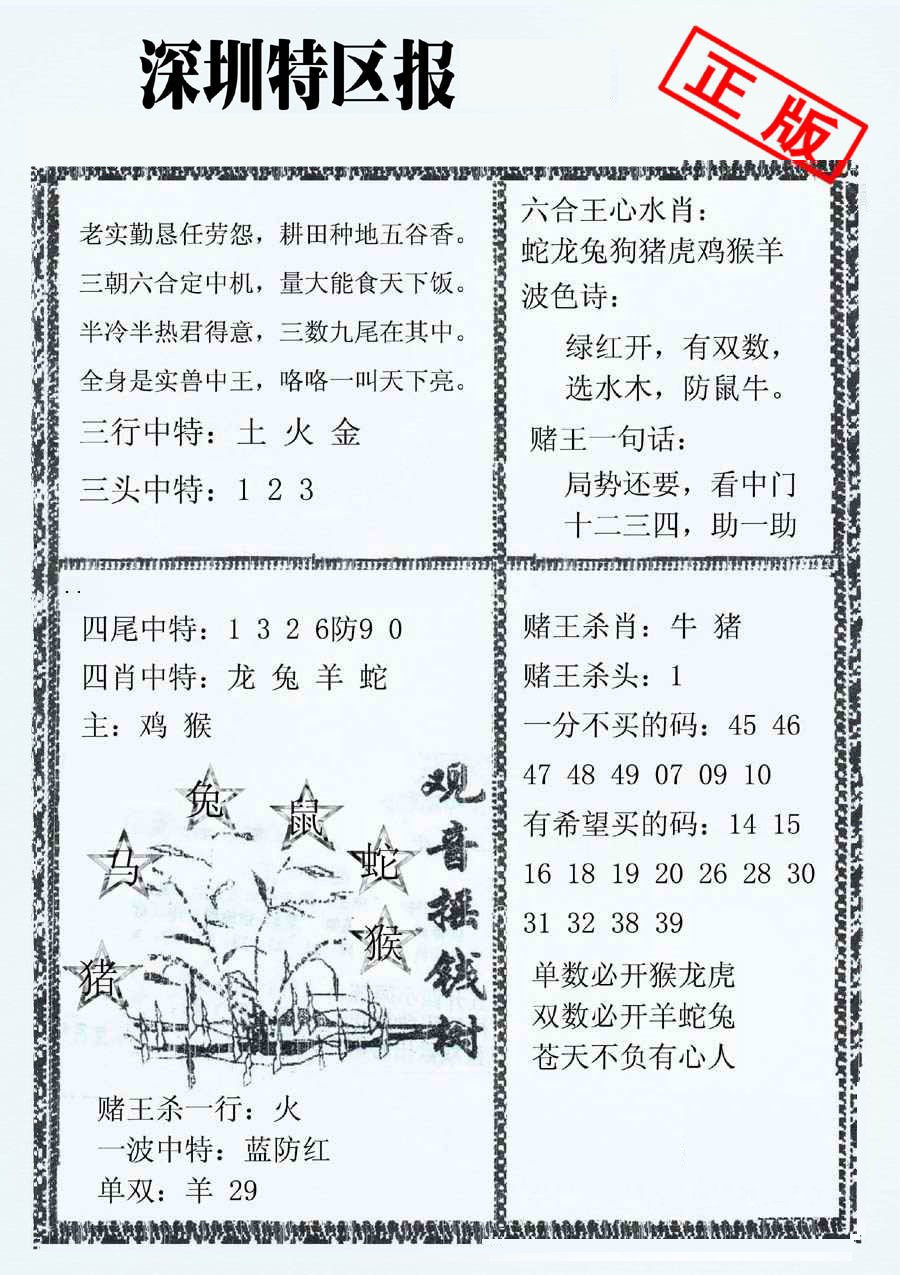 深圳特区报
正版
老实勤恳任劳怨，耕田种地五谷香。
三朝六合定中机，量大能食天下饭。
半冷半热君得意，三数九尾在其中。
全身是实兽中王，咯咯一叫天下亮。
三行中特：土 火 金
三头中特：1 2 3
六合王心水肖：
蛇龙兔狗猪虎鸡猴羊
波色诗：
绿红开，有双数，
选水木，防鼠牛。
赌王一句话：
局势还要，看中门
十二三四，助一助
四尾中特：1 3 2 6防9 0
四肖中特：龙 兔 羊 蛇
主：鸡 猴
兔
鼠
马
蛇
猴
猪
观音摇钱树
赌王杀一行：火
一波中特：蓝防红
单双：羊 29
赌王杀肖：牛 猪
赌王杀头：1
一分不买的码：45 46
47 48 49 07 09 10
有希望买的码：14 15
16 18 19 20 26 28 30
31 32 38 39
单数必开猴龙虎
双数必开羊蛇兔
苍天不负有心人